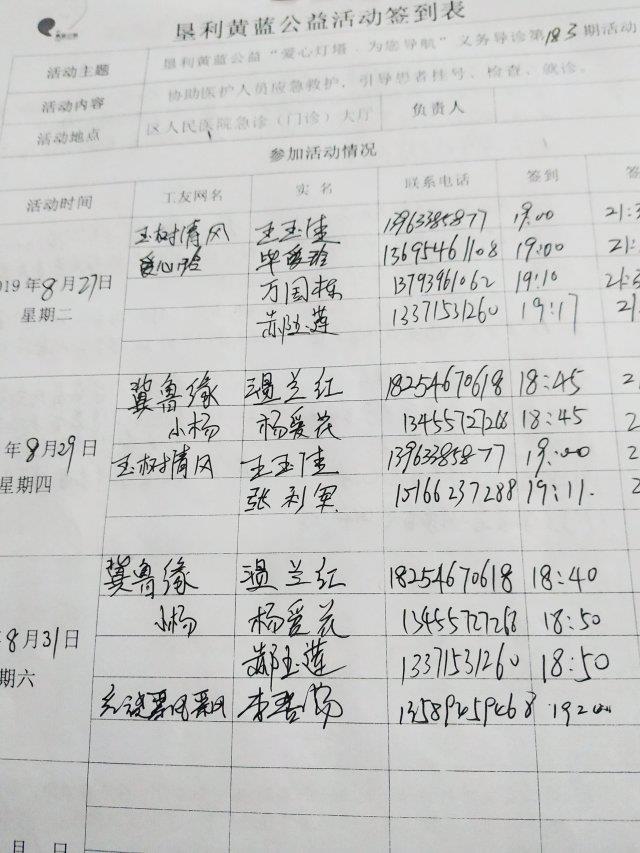 垦利黄蓝公益活动签到表
活动主题 垦利黄蓝公益“爱心灯塔 为您导航”义务导诊第183期活动
活动内容 协助医护人员应急救护，引导患者挂号、检查、就诊。
活动地点 区人民医院急诊（门诊）大厅 负责人
参加活动情况
活动时间 工友网名 实 名 联系电话 签到
玉树清风 王玉佳 13963385877 19:00 21:3
爱心 毕爱玲 13695461108 19:00 21:
019年8月27日 万国栋 13793961062 19:10 21:3
星期二 郝玉莲 13371531260 19:17 21:
冀鲁缘 温兰红 18254670618 18:45 2
年8月29日 小杨 杨爱花 13455727268 18:45 2
星期四 玉树清风 王玉佳 13963385877 19:00 2
张利军 15166237288 19:11. 2
冀鲁缘 温兰红 18254670618 18:40
8月31日 小杨 杨爱花 13455727268 18:50
期六 郝玉莲 13371531260 18:50
李 13589459468
月 日